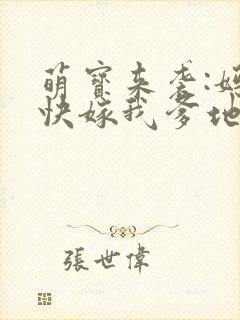 萌寶来袭:
快嫁我爹地
張世偉